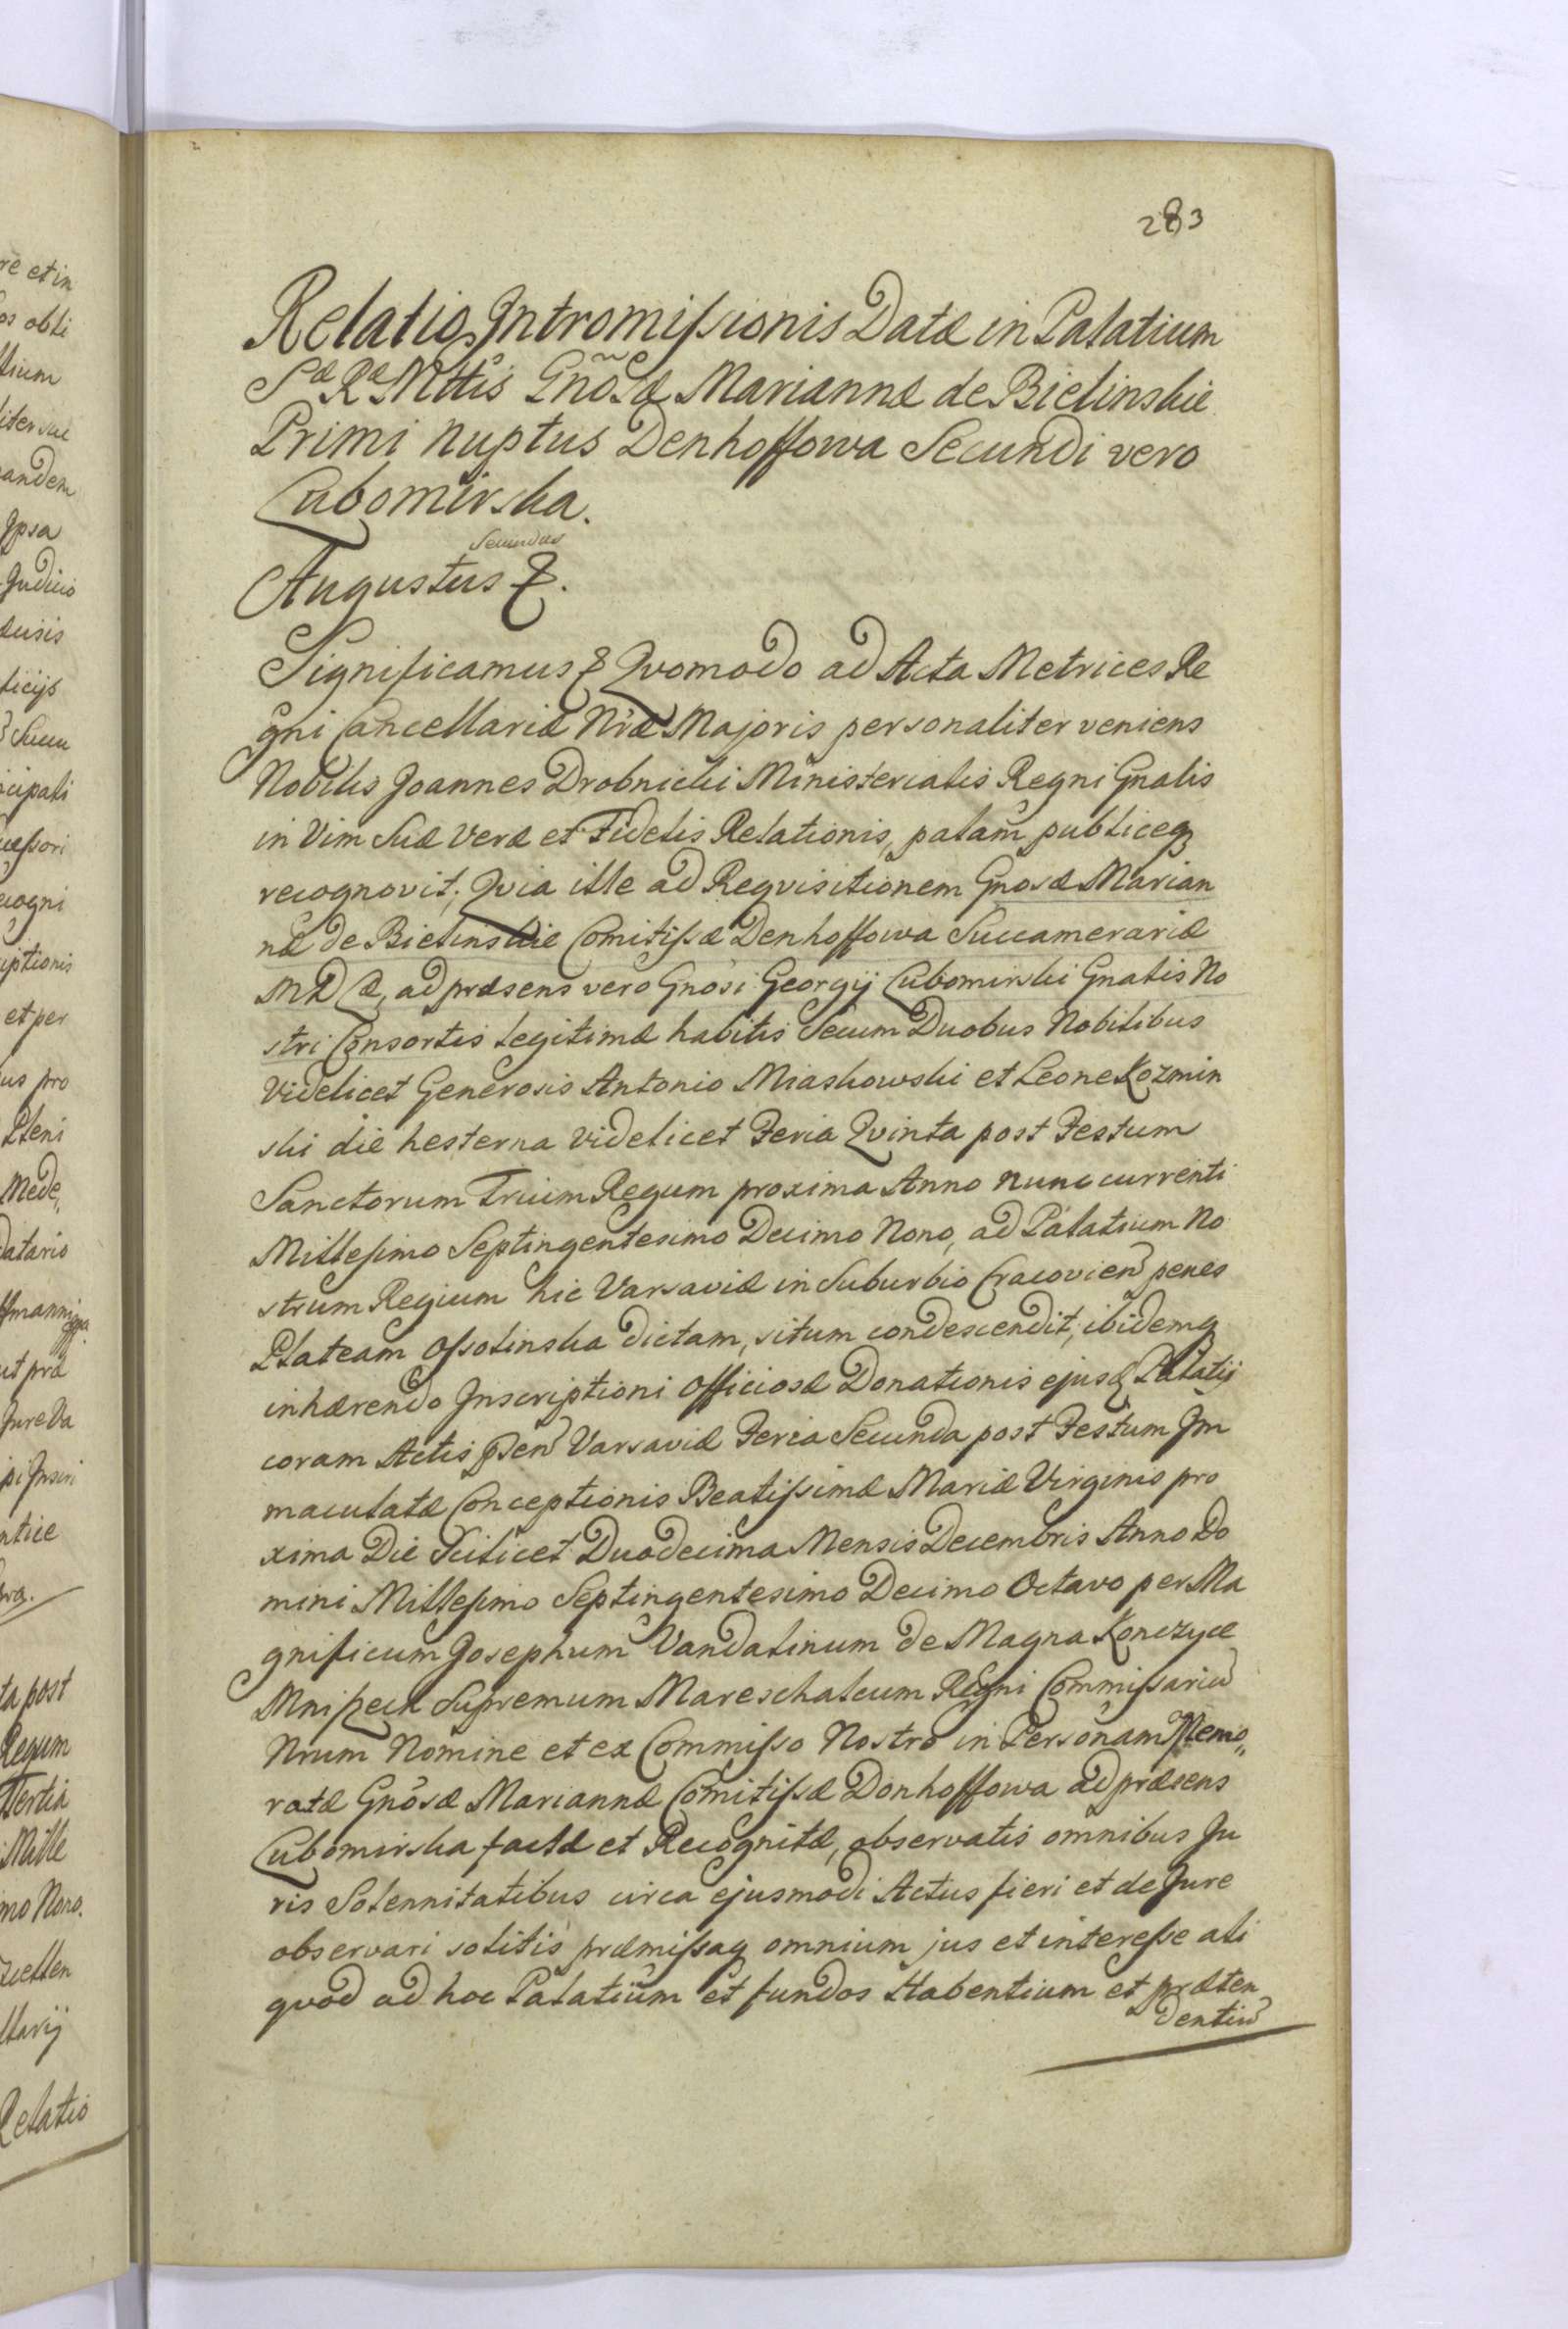 283
Relatio Intromissionis Datæ in Palatium
Sæ Ræ Mttis Gnosæ Mariannæ de Bielinskie
Primi nuptus Denhoffowa Secundi vero
Lubomirska.
Secundus
Augustus &.
Significamus & Qvomodo ad Acta Metrices Re
gni Cancellariæ Nræ Majoris personaliter veniens
Nobilis Joannes Drobnicki Ministerialis Regni Gnalis
in Vim Suæ Veræ et Fidelis Relationis, palam publiceq
recognovit; Qvia ille ad Reqvisitionem Gnosæ Marian
næ de Bielinskie Comitissæ Denhoffowa Succamerariæ
MDL, ad præsens vero Gnosi Georgij Lubomirski Gnalis No
stri Consortis legitimæ habitis Secum Duobus Nobilibus
Videlicet Generosis Antonio Miaskowski et Leone Kozmin
ski die hesterna videlicet Feria Qvinta post Festum
Sanctorum Trium Regum proxima Anno nunc currenti
Millesimo Septingentesimo Decimo Nono, ad Palatium No
strum Regium hic Varsaviæ in Suburbio Cracovien penes
Plateam Ossolinska dictam, situm condescendit, ibidemq
inhærendo Inscriptioni Officiosæ Donationis ejusq Palatij
coram Actis pñen Varsaviæ Feria Secunda post Festum Im
maculatæ Conceptionis Beatissimæ Mariæ Virginis pro
xima Die Scilicet Duodecima Mensis Decembris Anno Do
mini Millesimo Septingentesimo Decimo Octavo per Ma
gnificum Josephum Vandalinum de Magna Konczyce
Mniszech Supremum Mareschalcum Regni Commissariu
Nrum Nomine et ex Commisso Nostro in Personam Memo„
ratæ Gnosæ Mariannæ Comitissæ Donhoffowa ad præsens
Lubomirska factæ et Recognitæ, observatis omnibus Ju
ris Solennitatibus circa ejusmodi Actus fieri et de Jure
observari solitis præmissaq omnium jus et interesse ali
qvod ad hoc Palatium et fundos Habentium et præten
dentiu
re et in
os obli
andem
Ipsa
Judicio
ticijs
cipali
cessori
cogni
iptionis
et per
us pro
Pleni
Mede„
datario
ut præ
Jure Va
pi Inscri
ta post
Regum
Tertia
Mille
mo Nono.
llarij
Relatio